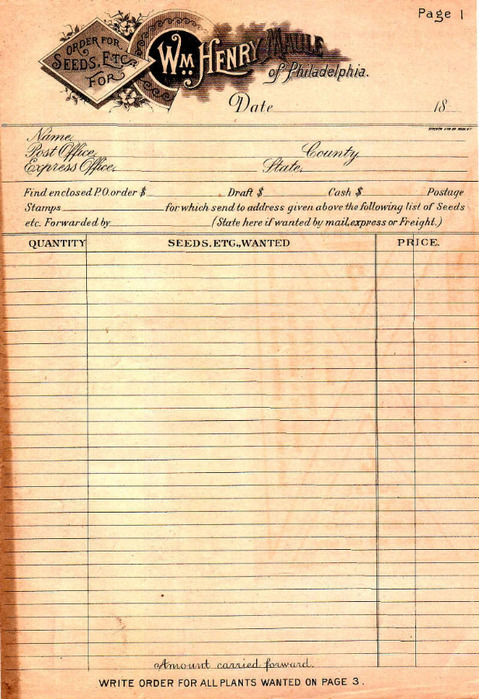 Page 1
ORDER FOR
SEEDS, ETC.
FOR
WM HENRY MAULE
of Philadelphia.
Date 18
Name
Post Office, County
Express Office, State,
Find enclosed P.O. order $ . Draft $ Cash $ Postage
Stamps for which send to address given above the following list of Seeds
etc. Forwarded by (State here if wanted by mail, express or Freight.)
QUANTITY SEEDS, ETC., WANTED PRICE.
Amount carried forward.
WRITE ORDER FOR ALL PLANTS WANTED ON PAGE 3.